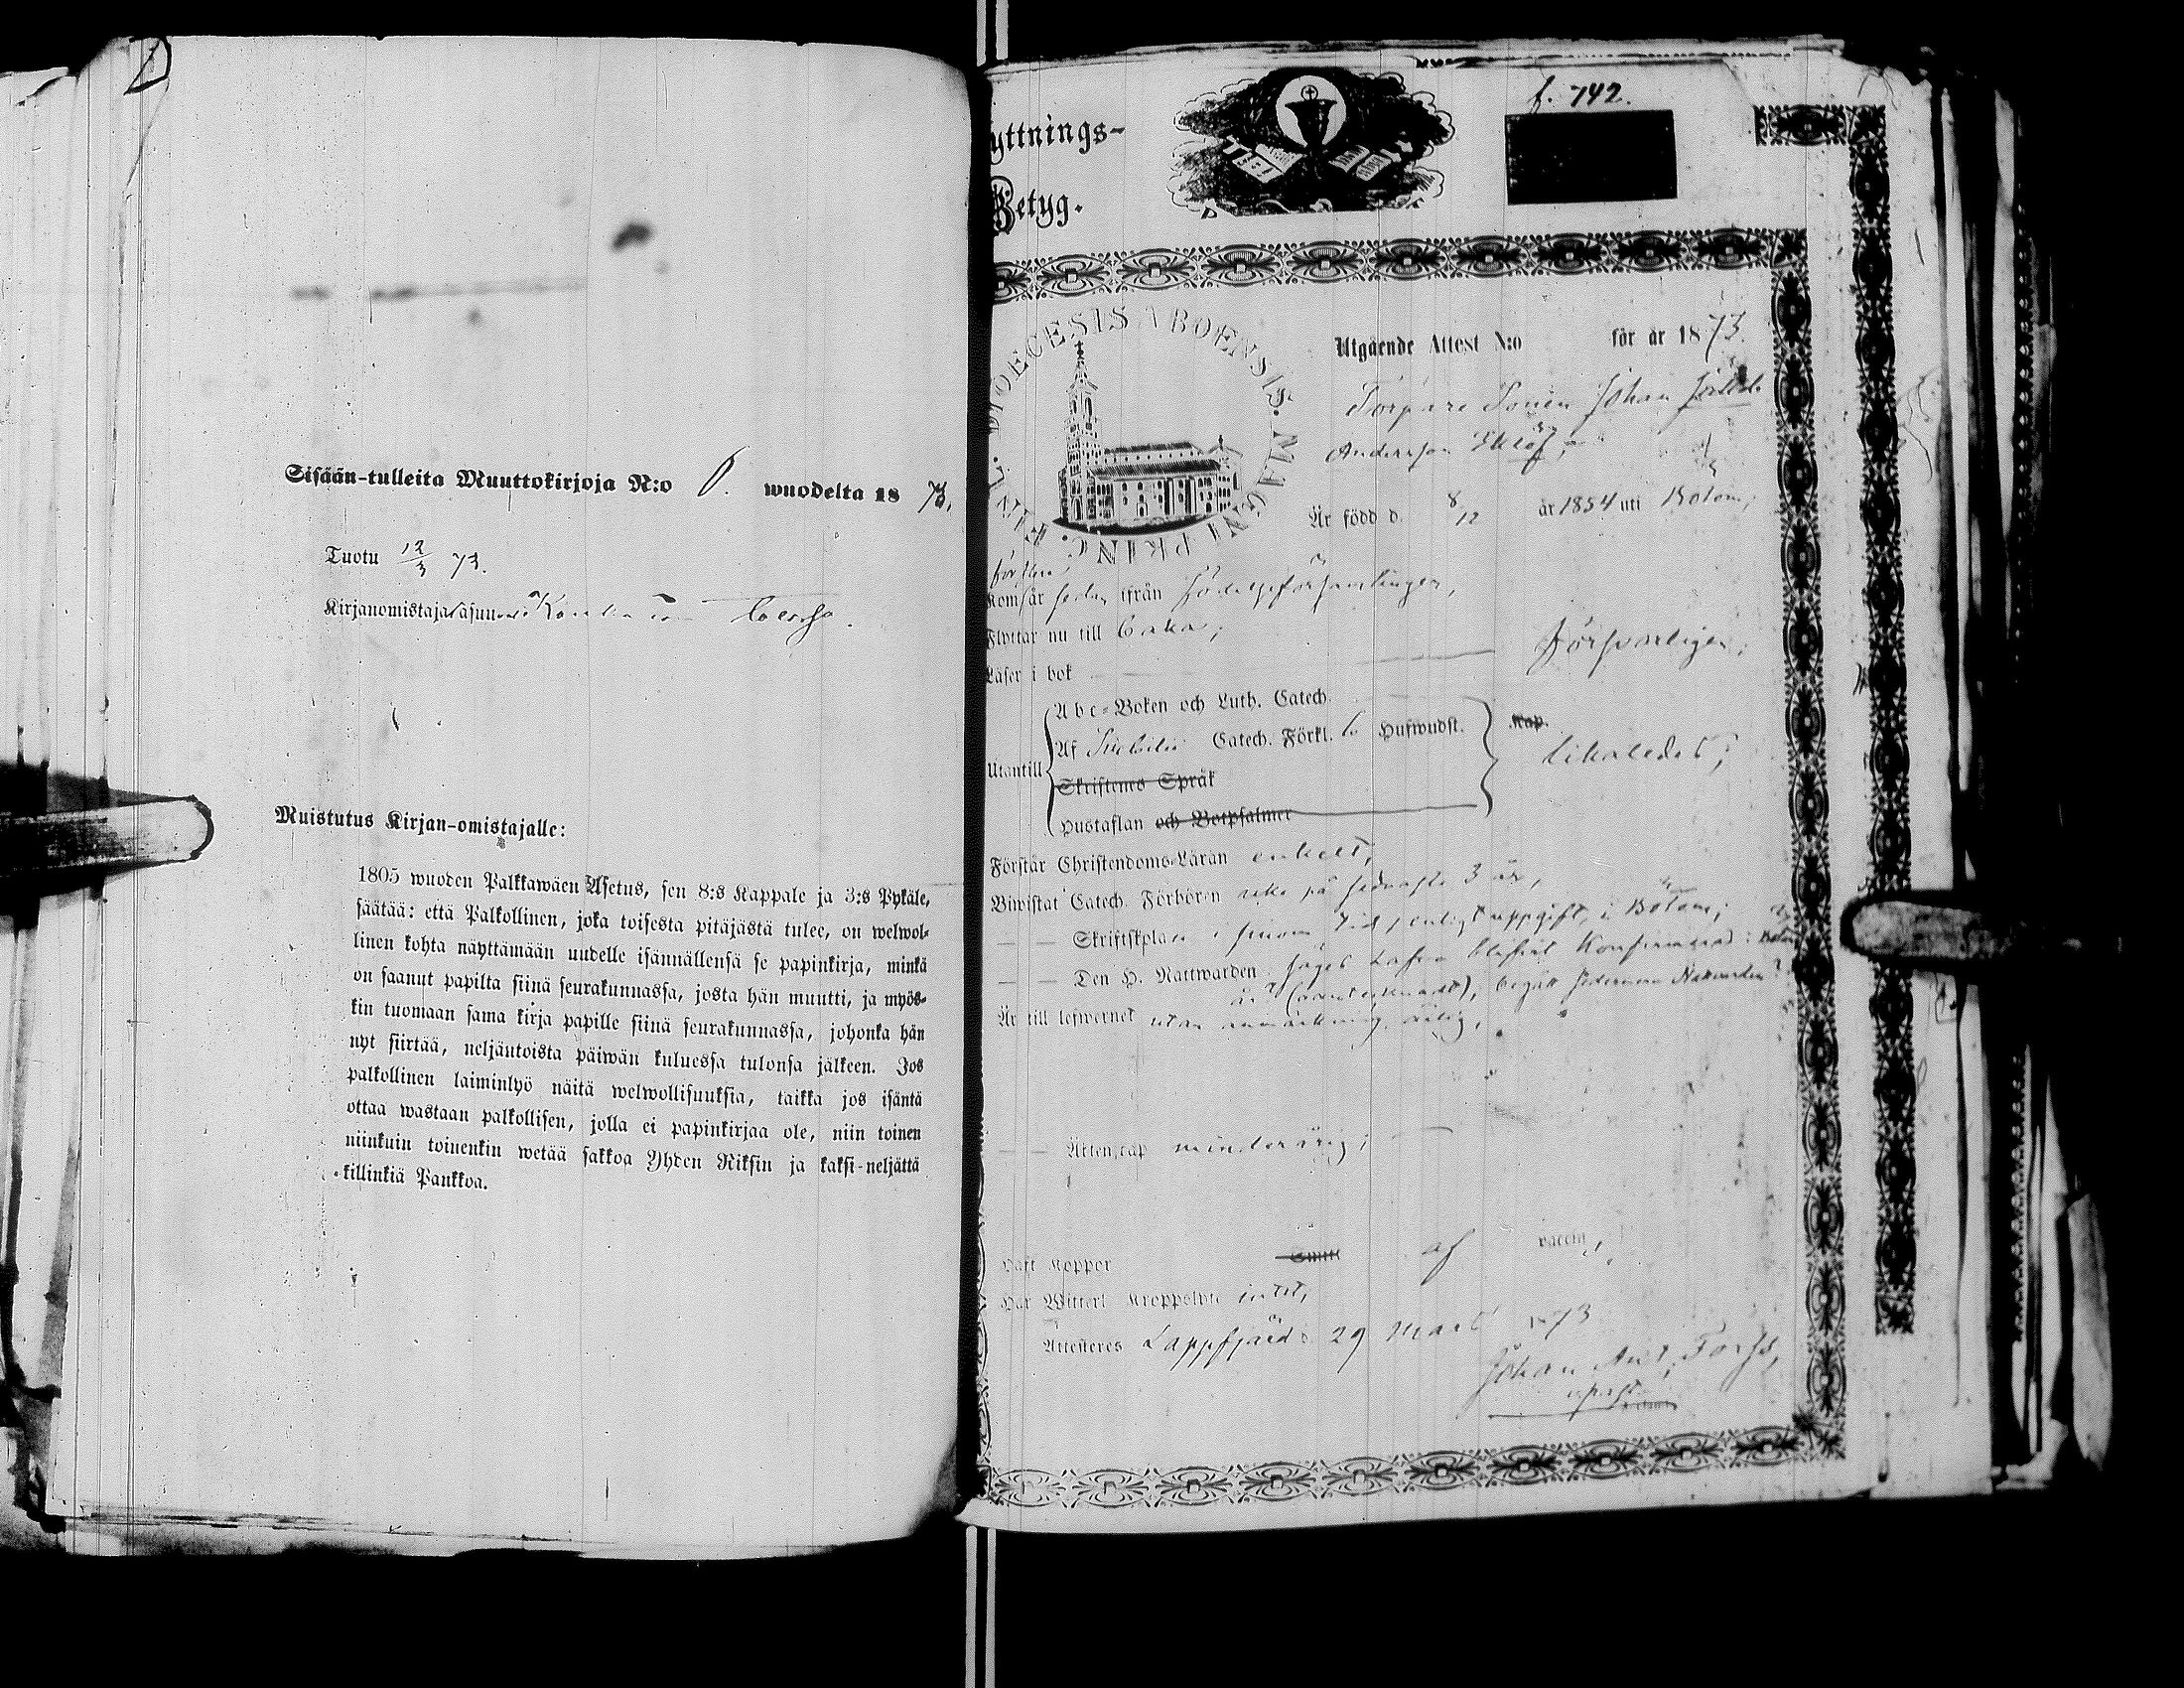 Sisään-tulleita Muuttokirjoja N:o wuodelta 18 73.
Tuotu 12/3 73.
Kirjanomistaja
Muistutus Kirjan-omistajalle:
1805 wuoden Palkkawäen Asetus, sen 8:s Kappale ja 3:s Pykäle,
säätää: että Palkollinen, joka toisesta pitäjästä tulee, on welwol-
linen kohta näyttämään uudelle isännällensä se papinkirja, minkä
on saanut papilta siinä seurakunnassa, josta hän muutti, ja myös-
kin tuomaan sama kirja papille siinä seurakunnassa, johonka hän
nyt siirtää, neljäntoista päiwän kuluessa tulonsa jälkeen. Jos
palkollinen laiminlyö näitä welwollisuuksia, taikka jos isäntä
ottaa wastaan palkollisen, jolla ei papinkirjaa ole, niin toinen
niinkuin toinenkin wetää sakkoa Yhden Riksin ja kaksi-neljättä
killinkiä Pankkoa.
f. 742.
yttnings-
Betyg.
DIOECESIS ABOENSIS. MAGNI PRINC. FINL.
Utgående Attest N:o för år 1873.
Torpare Sonen Johan
Andersson Eklöf,
Är född d. 8/12 år 1854 uti Bötom,
Kom här sedan ifrån födelseförsamlingen,
Flyttar nu till
Läser i bok försvarligen,
Utantill
Abc-Boken och Luth. Catech.
Af Svebilii Catech. Förkl. 6 Hufwudst. Kap.
likaledes,
Skriftenes Språk
Hustaflan och Botpsalmer
Förstår Christendoms-Läran enkelt,
Biwistat Catech. Förhören icke på sednaste 3 år,
— — Skriftskolan i sinom tid, enligt uppgift, i Bötom;
— — Den H. Nattwarden säges hafva blifvit Konfirmerad i
Är till lefwernet utan anmärkning
— — Ächtenskap minderårig;
Haft Koppor Smitt af vaccin,
Har Witterl. Kroppslyte intet,
Attesteras Lappfjärd d. 29 Mart 1873
Johan Ant. Forss,